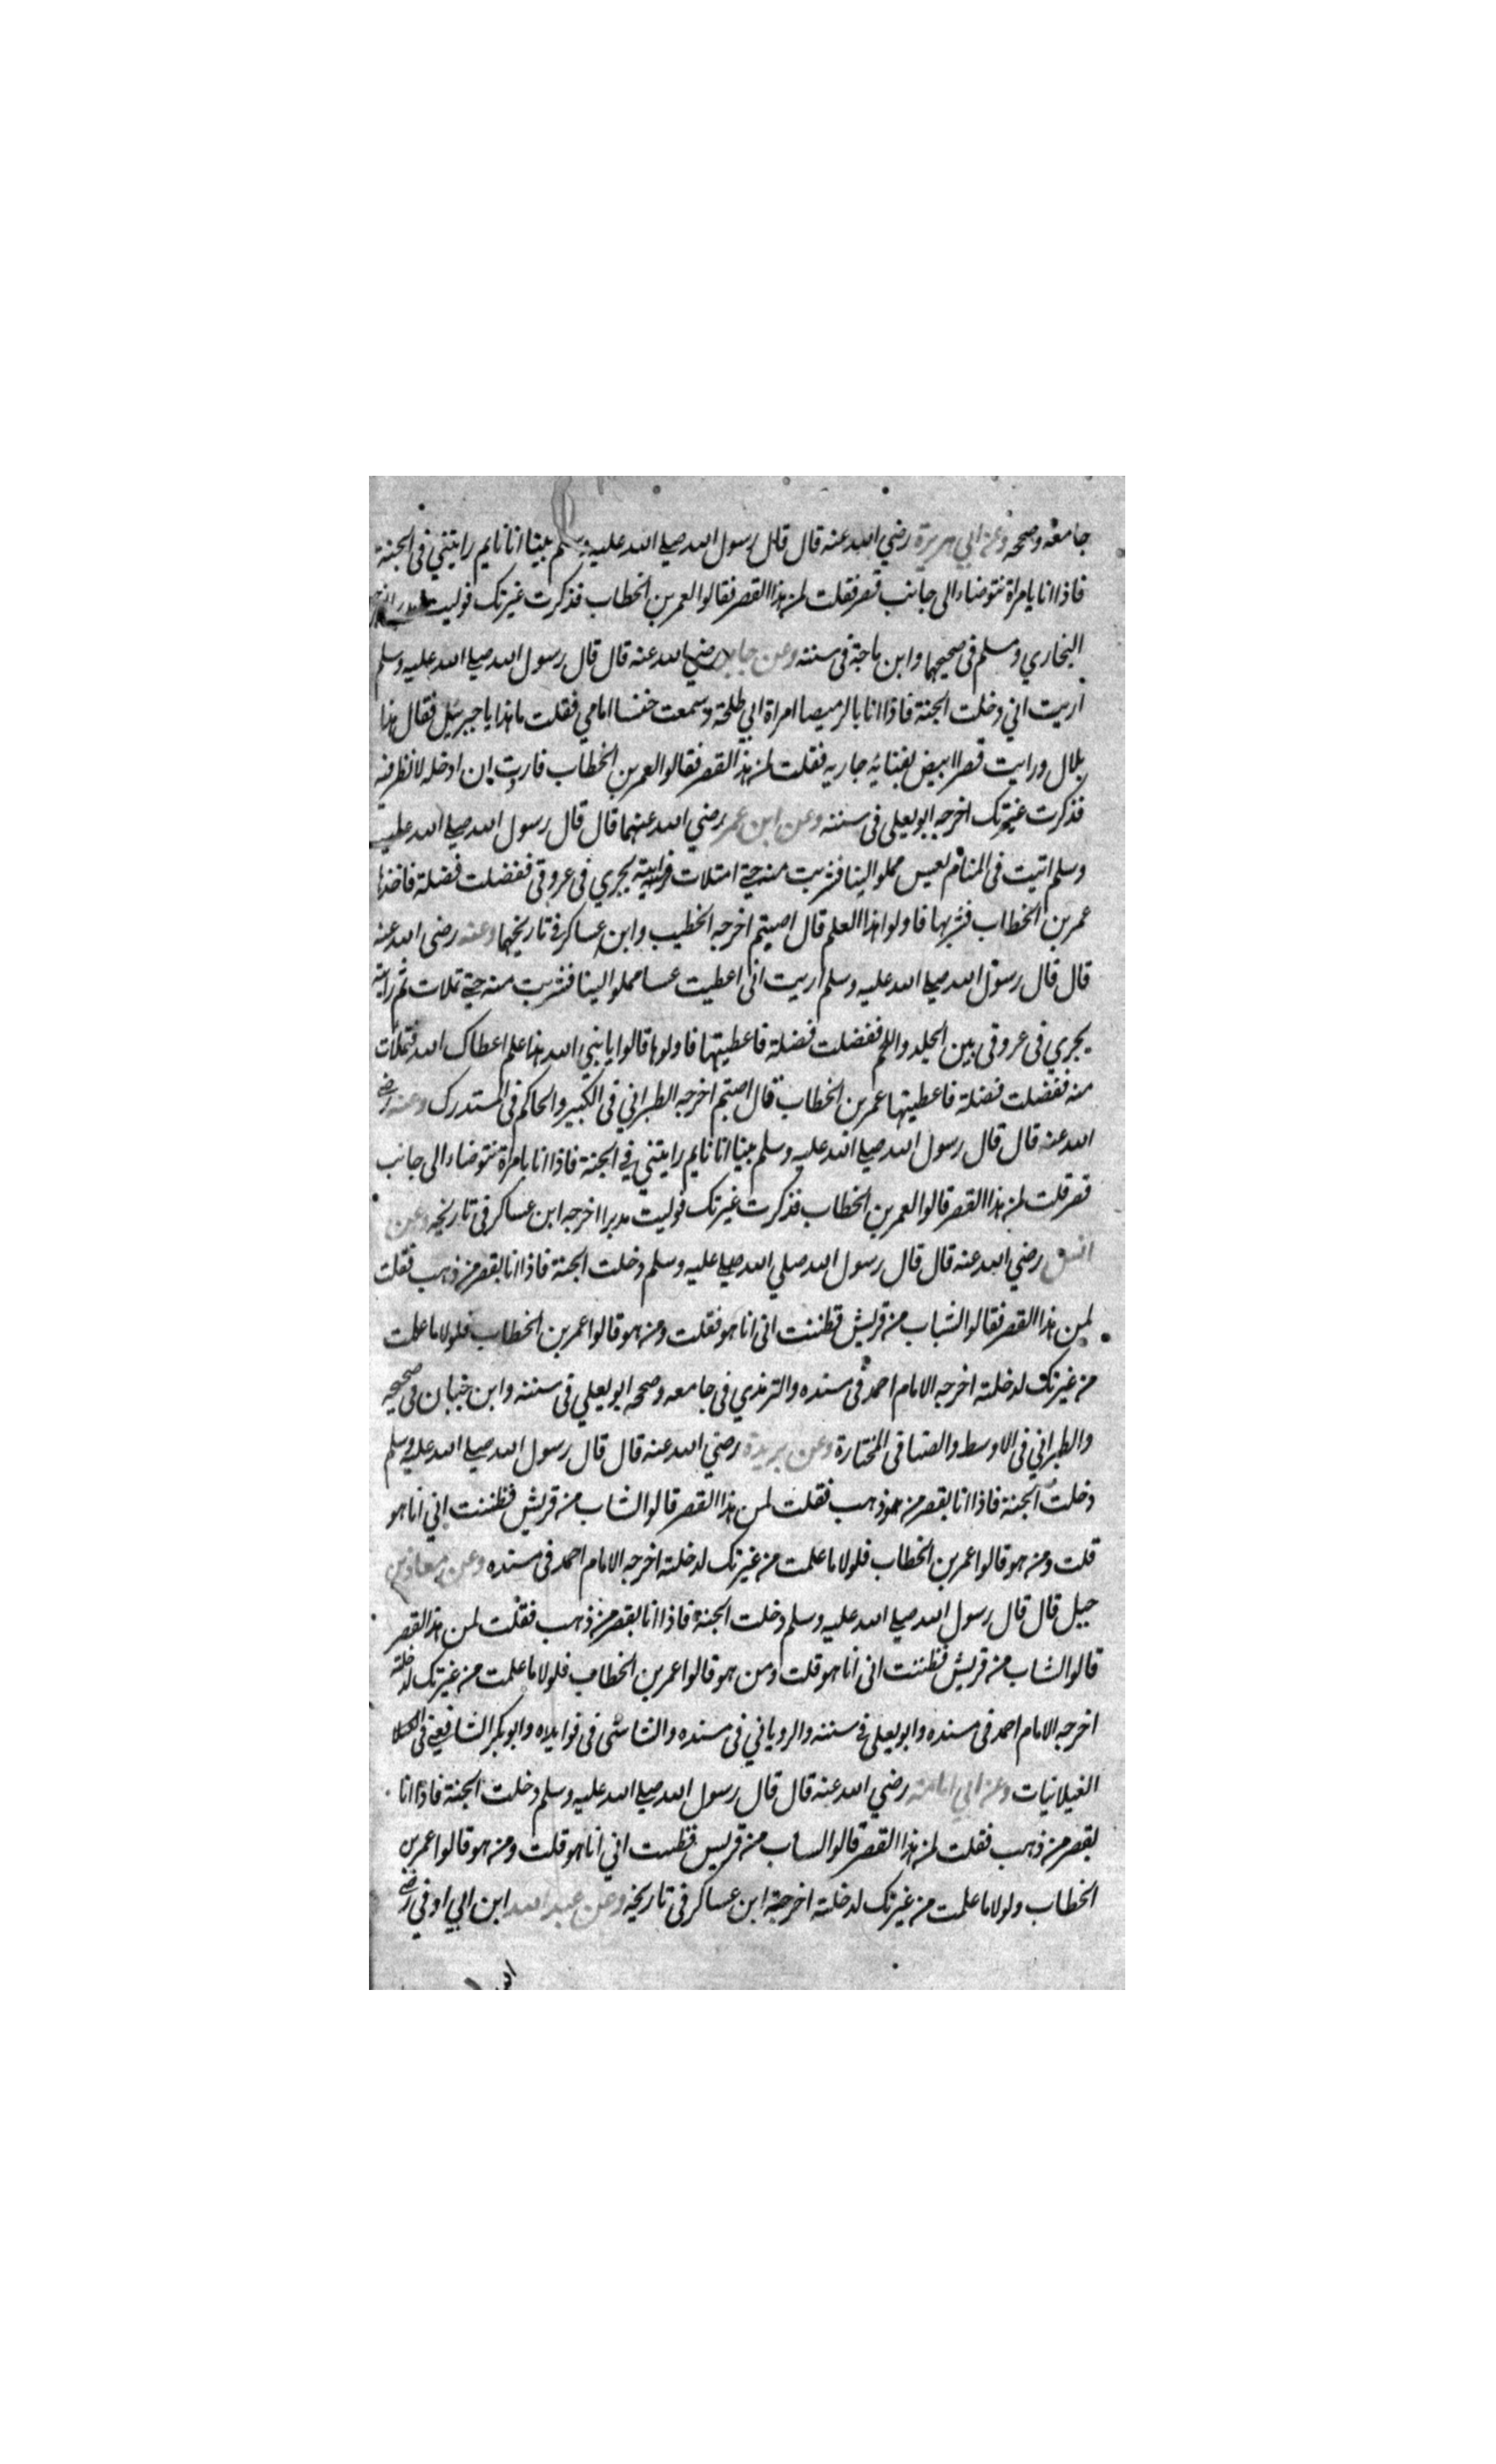 جامعه وصححه وعن ابي هريرة رضي الله عنه قال قال رسول الله صلى الله عليه وسلم بينا انا نايم رايتني فى الجنة
فاذا انا بامراة تتوضاء الى جانب قصر فقلت لمن هذا القصر فقالوا لعمر بن الخطاب فذكرت غيرتك فوليت
البخاري ومسلم فى صحيحهما وابن ماجة فى سننه وعن جابر رضي الله عنه قال قال رسول الله صلى الله عليه وسلم
اريت اني دخلت الجنة فاذا انا بالرميصا امراة ابي طلحة وسمعت خشفا امامي فقلت ما هذا يا جبرئيل فقال هذا
بلال ورايت قصرا ابيض بفنائه جاريه فقلت لمن هذا القصر فقالوا لعمر بن الخطاب فاردت ان ادخله لانظر فيه
فذكرت غيرتك اخرجه ابو يعلى فى سننه وعن ابن عمر رضي الله عنهما قال قال رسول الله صلى الله عليه
وسلم اتيت فى المنام بعس مملو لبنا فشربت منه حتى امتلات فرايته يجري فى عروقى ففضلت فضلة فاخذها
عمر بن الخطاب فشربها فاولوا هذا العلم قال اصبتم اخرجه الخطيب وابن عساكر فى تاريخهما وعنه رضى الله عنه
قال قال رسول الله صلى الله عليه وسلم اريت انى اعطيت عسا مملوا لبنا فشربت منه حتى تملات ثم رايته
يجري فى عروقى بين الجلد واللحم ففضلت فضلة فاعطيتها فاولوها قالوا يا نبي الله هذا علم اعطاك الله فتملات
منه ففضلت فضلة فاعطيتها عمر بن الخطاب قال اصبتم اخرجه الطبراني فى الكبير والحاكم فى المستدرك وعنه رضي
الله عنه قال قال رسول الله صلى الله عليه وسلم بينا انا نايم رايتني في الجنة فاذا انا بامراة تتوضاء الى جانب
قصر قلت لمن هذا القصر قالوا لعمر بن الخطاب فذكرت غيرتك فوليت مدبرا اخرجه ابن عساكر فى تاريخه وعن
انس رضي الله عنه قال قال رسول الله صلي الله صلى عليه وسلم دخلت الجنة فاذا انا بقصر من ذهب فقلت
لمن هذا القصر فقالوا لشاب من قريش فظننت انى انا هو فقلت ومن هو قالوا عمر بن الخطاب فلولا ما علمت
من غيرتك لدخلته اخرجه الامام احمد فى مسنده والترمذي فى جامعه وصححه ابو يعلي فى سننه وابن حبان فى صحيحه
والطبراني فى الاوسط والضيا فى المختارة وعن بريدة رضي الله عنه قال قال رسول الله صلى الله عليه وسلم
دخلت الجنة فاذا انا بقصر من ذهب فقلت لمن هذا القصر قالوا لشاب من قريش فظننت اني انا هو
قلت ومن هو قالوا عمر بن الخطاب فلولا ما علمت من غيرتك لدخلته اخرجه الامام احمد فى مسنده وعن معاذ بن
جبل قال قال رسول الله صلى الله عليه وسلم دخلت الجنة فاذا انا بقصر من ذهب فقلت لمن هذا القصر
قالوا لشاب من قريش فظننت انى انا هو قلت ومن هو قالوا عمر بن الخطاب فلولا ما علمت من غيرتك لدخلته
اخرجه الامام احمد فى مسنده وابو يعلى فى سننه والروياني فى مسنده والشاشى فى فوايده وابو بكر الشافعي فى
الغيلانيات وعن ابي امامة رضي الله عنه قال قال رسول الله صلى الله عليه وسلم دخلت الجنة فاذا انا
بقصر من ذهب فقلت لمن هذا القصر قالوا لشاب من قريش فظننت اني انا هو قلت ومن هو قالوا عمر بن
الخطاب ولولا ما علمت من غيرتك لدخلته اخرجه ابن عساكر فى تاريخه وعن عبد الله ابن ابي اوفي رضي